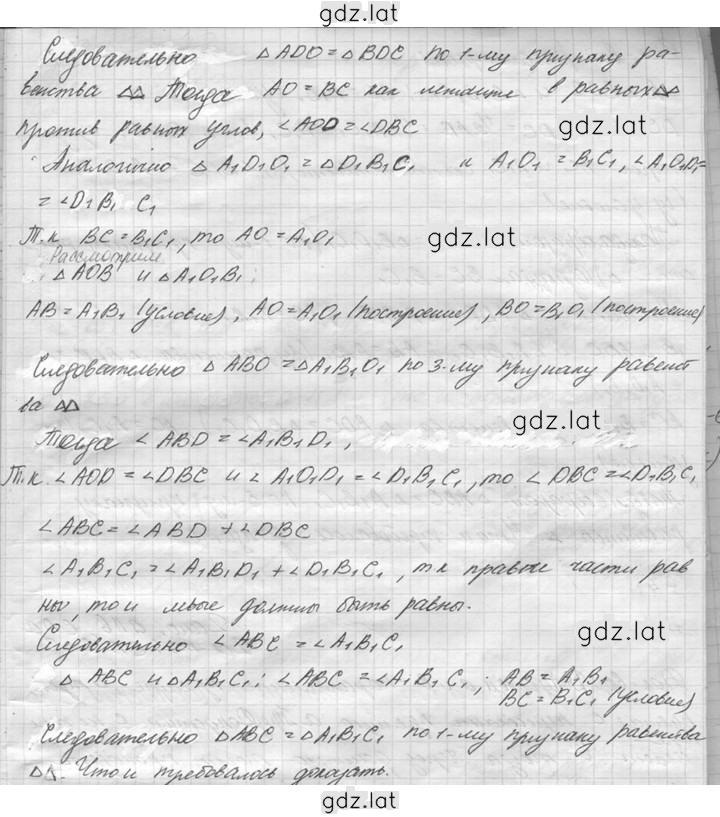 gdz.lat
Следовательно △ADO = △BDC по 1-му признаку ра-
венства △△ Тогда AO = BC как лежащие в равных △△
gdz.lat
против равных углов, ∠AOD = ∠DBC
Аналогично △A₁D₁O₁ = △D₁B₁C₁ и A₁O₁ = B₁C₁, ∠A₁O₁D₁=
= ∠D₁B₁C₁
gdz.lat
Т.к. BC = B₁C₁, то AO = A₁O₁
Рассмотрим
△AOB и △A₁O₁B₁:
AB = A₁B₁ (условие), AO = A₁O₁ (построение), BO = B₁O₁ (построение)
Следовательно △ABO = △A₁B₁O₁ по 3-му признаку равенст
ва △△
gdz.lat
Тогда ∠ABD = ∠A₁B₁D₁,
Т.к. ∠AOD = ∠DBC и ∠A₁O₁D₁ = ∠D₁B₁C₁, то ∠DBC = ∠D₁B₁C₁
∠ABC = ∠ABD + ∠DBC
∠A₁B₁C₁ = ∠A₁B₁D₁ + ∠D₁B₁C₁, т.к правые части рав
ны, то и левые должны быть равны.
gdz.lat
Следовательно ∠ABC = ∠A₁B₁C₁
△ABC и △A₁B₁C₁: ∠ABC = ∠A₁B₁C₁; AB = A₁B₁
BC = B₁C₁ (условие)
Следовательно △ABC = △A₁B₁C₁ по 1-му признаку равенства
△△. Что и требовалось доказать.
gdz.lat